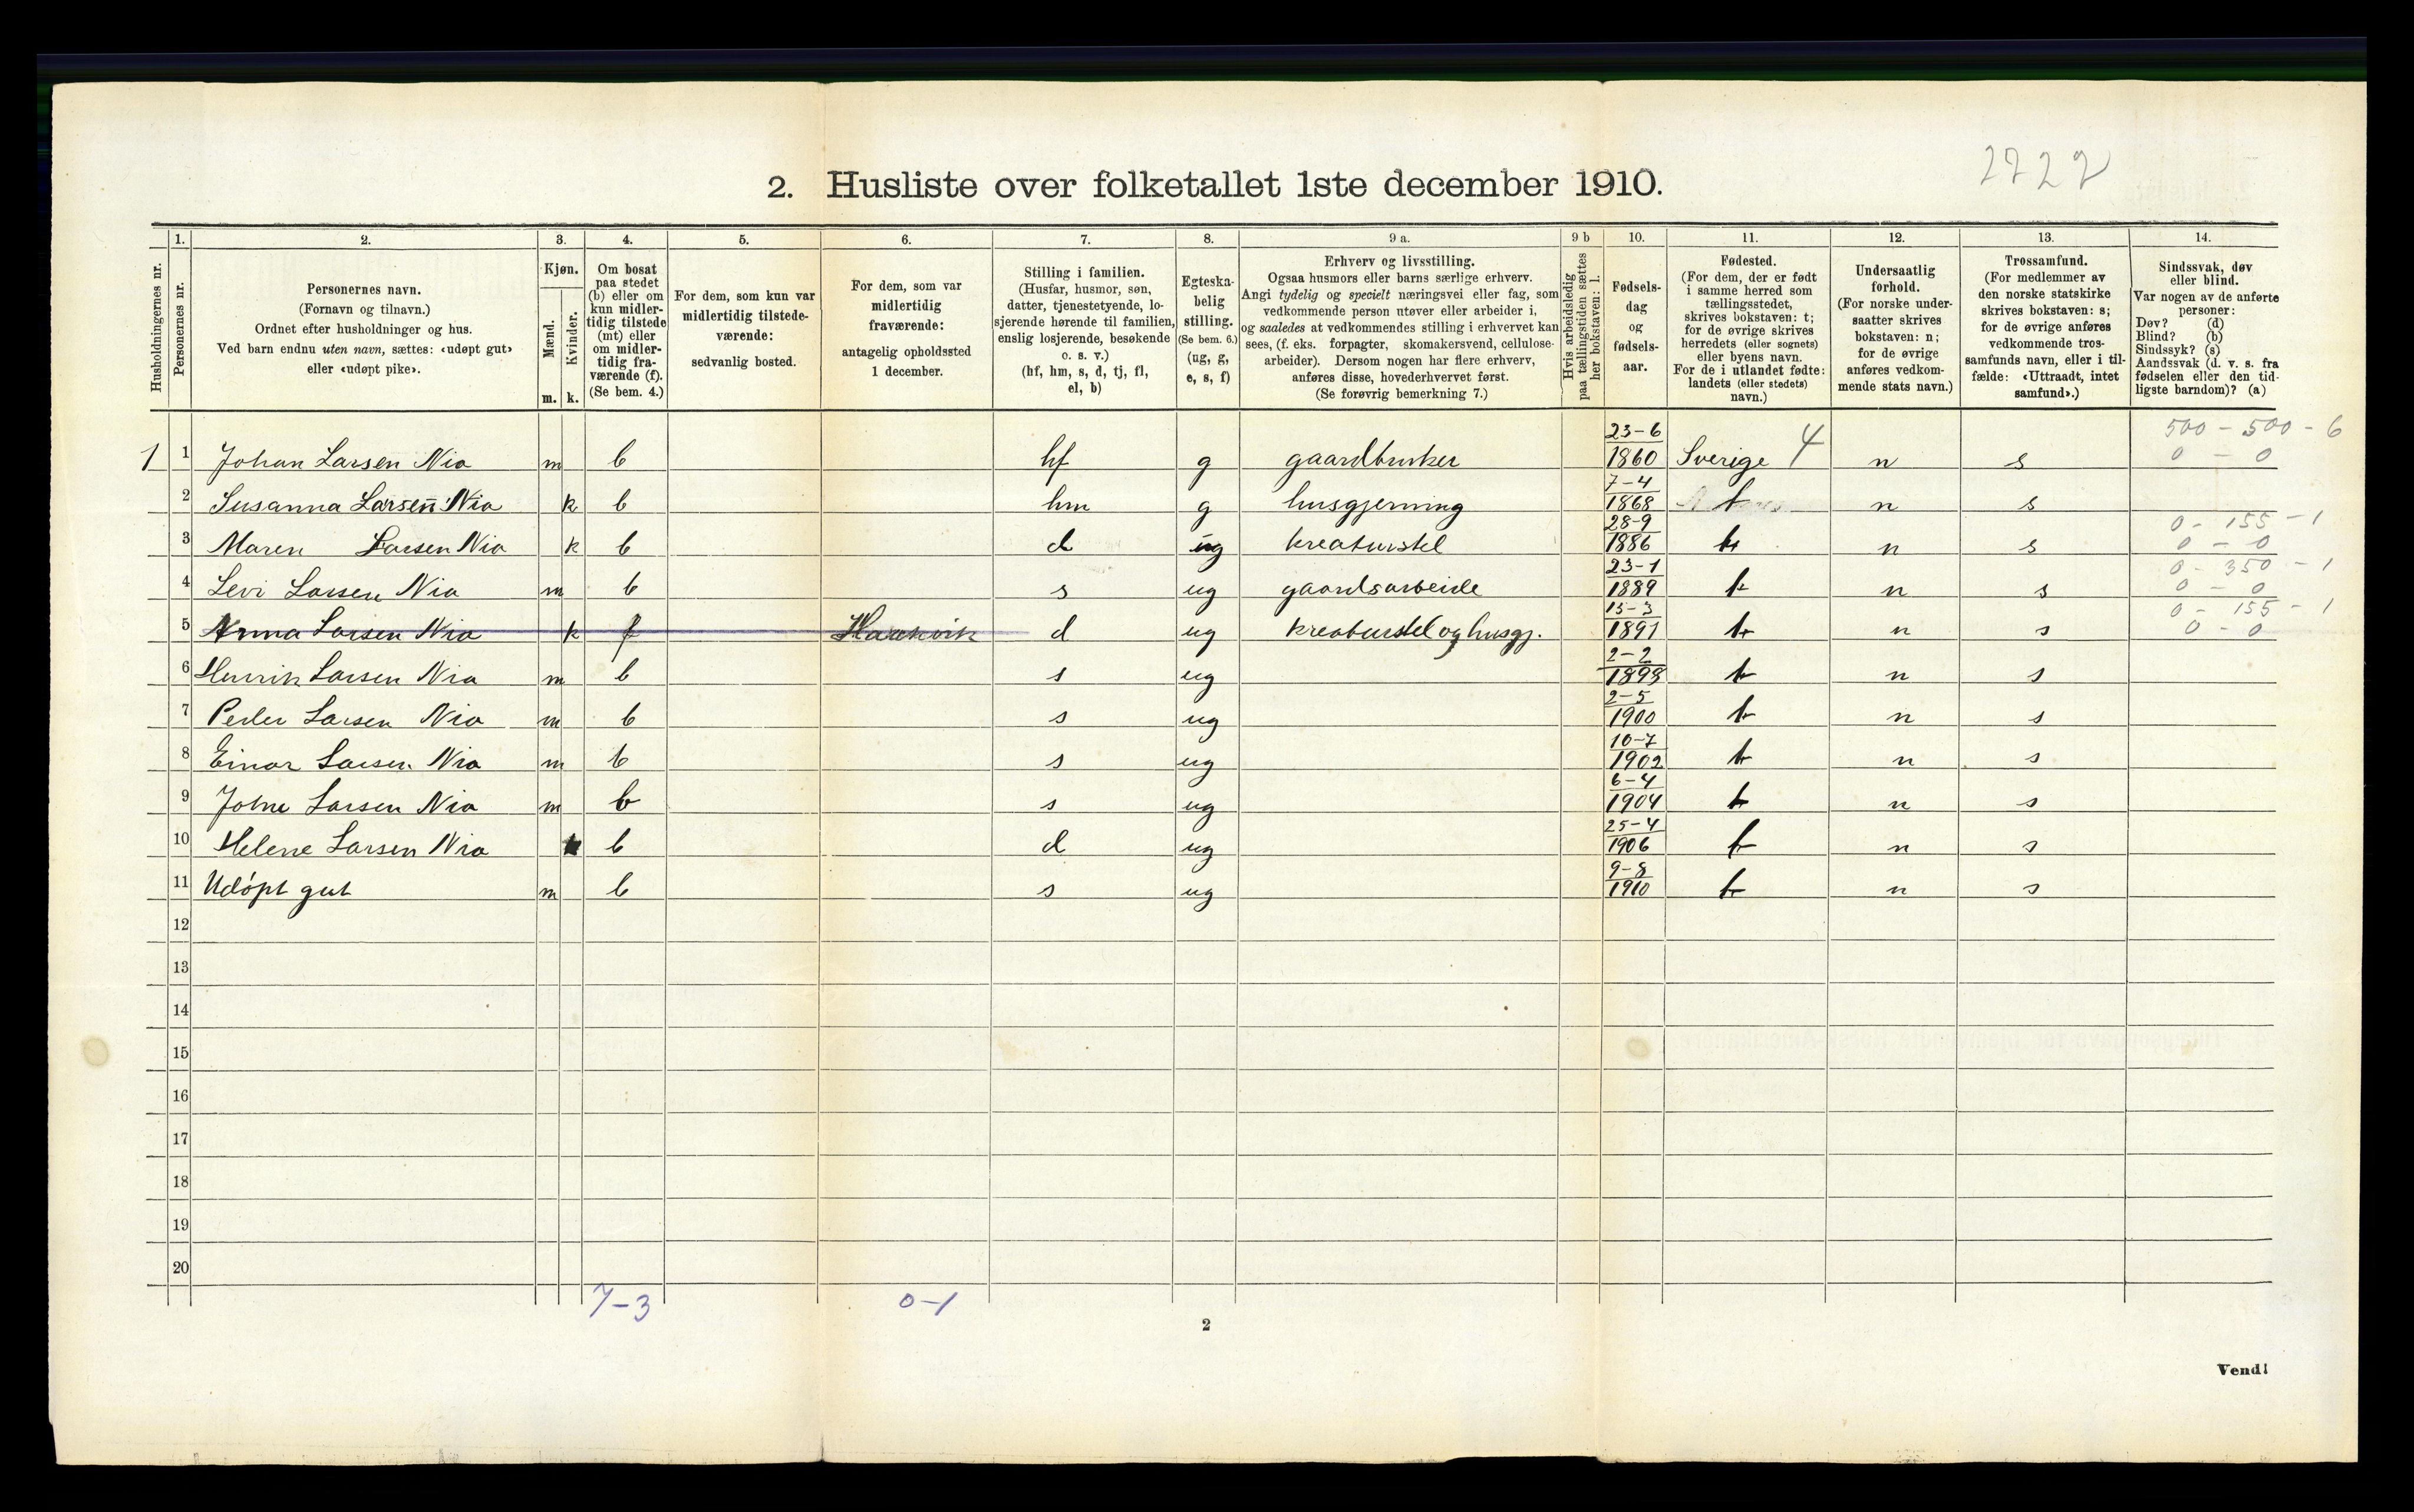 2722
2. Husliste over folketallet 1ste december 1910.
Husholdningernes nr.
1.
Personernes nr.
2.
Personernes navn.
(Fornavn og tilnavn.)
Ordnet efter husholdninger og hus.
Ved barn endnu uten navn, sættes: «udøpt gut»
eller «udøpt pike».
3.
Kjøn.
Mænd.
Kvinder.
m. k.
4.
Om bosat
paa stedet
(b) eller om
kun midler-
tidig tilstede
(mt) eller
om midler-
tidig fra-
værende (f).
(Se bem. 4.)
5.
For dem, som kun var
midlertidig tilstede-
værende:
sedvanlig bosted.
6.
For dem, som var
midlertidig
fraværende:
antagelig opholdssted
1 december.
7.
Stilling i familien.
(Husfar, husmor, søn,
datter, tjenestetyende, lo-
sjerende hørende til familien,
enslig losjerende, besøkende
o. s. v.)
(hf, hm, s, d, tj, fl,
el, b)
8.
Egteska-
belig
stilling.
(Se bem. 6.)
(ug, g,
e, s, f)
9 a.
Erhverv og livsstilling.
Ogsaa husmors eller barns særlige erhverv.
Angi tydelig og specielt næringsvei eller fag, som
vedkommende person utøver eller arbeider i,
og saaledes at vedkommendes stilling i erhvervet kan
sees, (f. eks. forpagter, skomakersvend, cellulose-
arbeider). Dersom nogen har flere erhverv,
anføres disse, hovederhvervet først.
(Se forøvrig bemerkning 7.)
9 b
Hvis arbeidsledig
paa tællingstiden sættes
her bokstaven: l.
10.
Fødsels-
dag
og
fødsels-
aar.
11.
Fødested.
(For dem, der er født
i samme herred som
tællingsstedet,
skrives bokstaven: t;
for de øvrige skrives
herredets (eller sognets)
eller byens navn.
For de i utlandet fødte:
landets (eller stedets)
navn.)
12.
Undersaatlig
forhold.
(For norske under-
saatter skrives
bokstaven: n;
for de øvrige
anføres vedkom-
mende stats navn.)
13.
Trossamfund.
(For medlemmer av
den norske statskirke
skrives bokstaven: s;
for de øvrige anføres
vedkommende tros-
samfunds navn, eller i til-
fælde: «Uttraadt, intet
samfund».)
14.
Sindssvak, døv
eller blind.
Var nogen av de anførte
personer:
Døv? (d)
Blind? (b)
Sindssyk? (s)
Aandssvak (d. v. s. fra
fødselen eller den tid-
ligste barndom)? (a)
1 1 Johan Larsen Nia m b hf g gaardbruker 23-6 1860 Sverige 4 n s 500 - 500 - 6 0 - 0
2 Susanna Larsen Nia k b hm g husgjerning 7-4 1868 t n s
3 Maren Larsen Nia k b d ug kreaturstel 28-9 1886 t n s 0 - 155 - 1 0 - 0
4 Levi Larsen Nia m b s ug gaardsarbeide 23-1 1889 t n s 0 - 350 - 1 0 - 0
5 Anna Larsen Nia k f d ug kreaturstel og husgj. 15-3 1891 t n s 0 - 155 - 1 0 - 0
6 Henrik Larsen Nia m b s ug 2-2 1898 t n s
7 Peder Larsen Nia m b s ug 2-5 1900 t n s
8 Einar Larsen Nia m b s ug 10-7 1902 t n s
9 Johne Larsen Nia m b s ug 6-4 1904 t n s
10 Helene Larsen Nia k b d ug 25-4 1906 t n s
11 Udøpt gut m b s ug 9-8 1910 t n s
12
13
14
15
16
17
18
19
20
7-3 0-1
2
Vend!